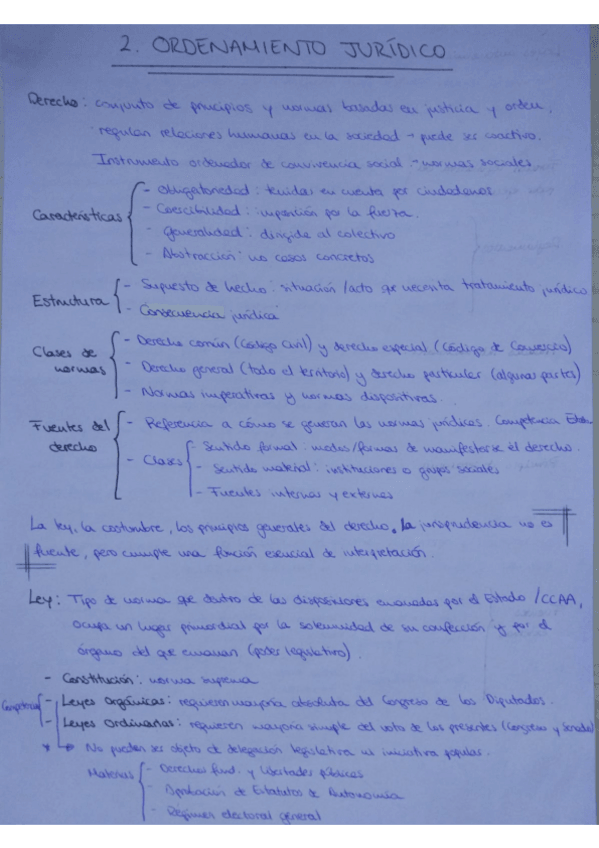 2. ORDENAMIENTO JURÍDICO
Derecho: conjunto de principios y normas basadas en justicia y orden,
regulan relaciones humanas en la sociedad → puede ser coactivo.
Instrumento ordenador de convivencia social → normas sociales
Características
- Obligatoriedad: tenidas en cuenta por ciudadanos
- Coercibilidad: imposición por la fuerza.
- Generalidad: dirigida al colectivo
- Abstracción: no casos concretos
Estructura
- Supuesto de hecho: situación/acto que necesita tratamiento jurídico
- Consecuencia jurídica
Clases de normas
- Derecho común (Código Civil) y derecho especial (Código de Comercio)
- Derecho general (todo el territorio) y derecho particular (algunas partes)
- Normas imperativas y normas dispositivas.
Fuentes del derecho
- Referencia a cómo se generan las normas jurídicas. Competencia
- Clases
- Sentido formal: modos/formas de manifestarse el derecho.
- Sentido material: instituciones o grupos sociales
- Fuentes internas y externas
La ley, la costumbre, los principios generales del derecho, la jurisprudencia no es
fuente, pero cumple una función esencial de interpretación.
Ley: Tipo de norma que dentro de las disposiciones emanadas por el Estado/CCAA,
ocupa un lugar primordial por la solemnidad de su confección y por el
órgano del que emanan (poder legislativo).
- Constitución: norma suprema
Competencia
- Leyes Orgánicas: requieren mayoría absoluta del Congreso de los Diputados.
- Leyes Ordinarias: requieren mayoría simple del voto de los presentes (Congreso y Senado)
* No pueden ser objeto de delegación legislativa ni iniciativa popular.
Materias
- Derechos fund. y libertades públicas
- Aprobación de Estatutos de Autonomía
- Régimen electoral general